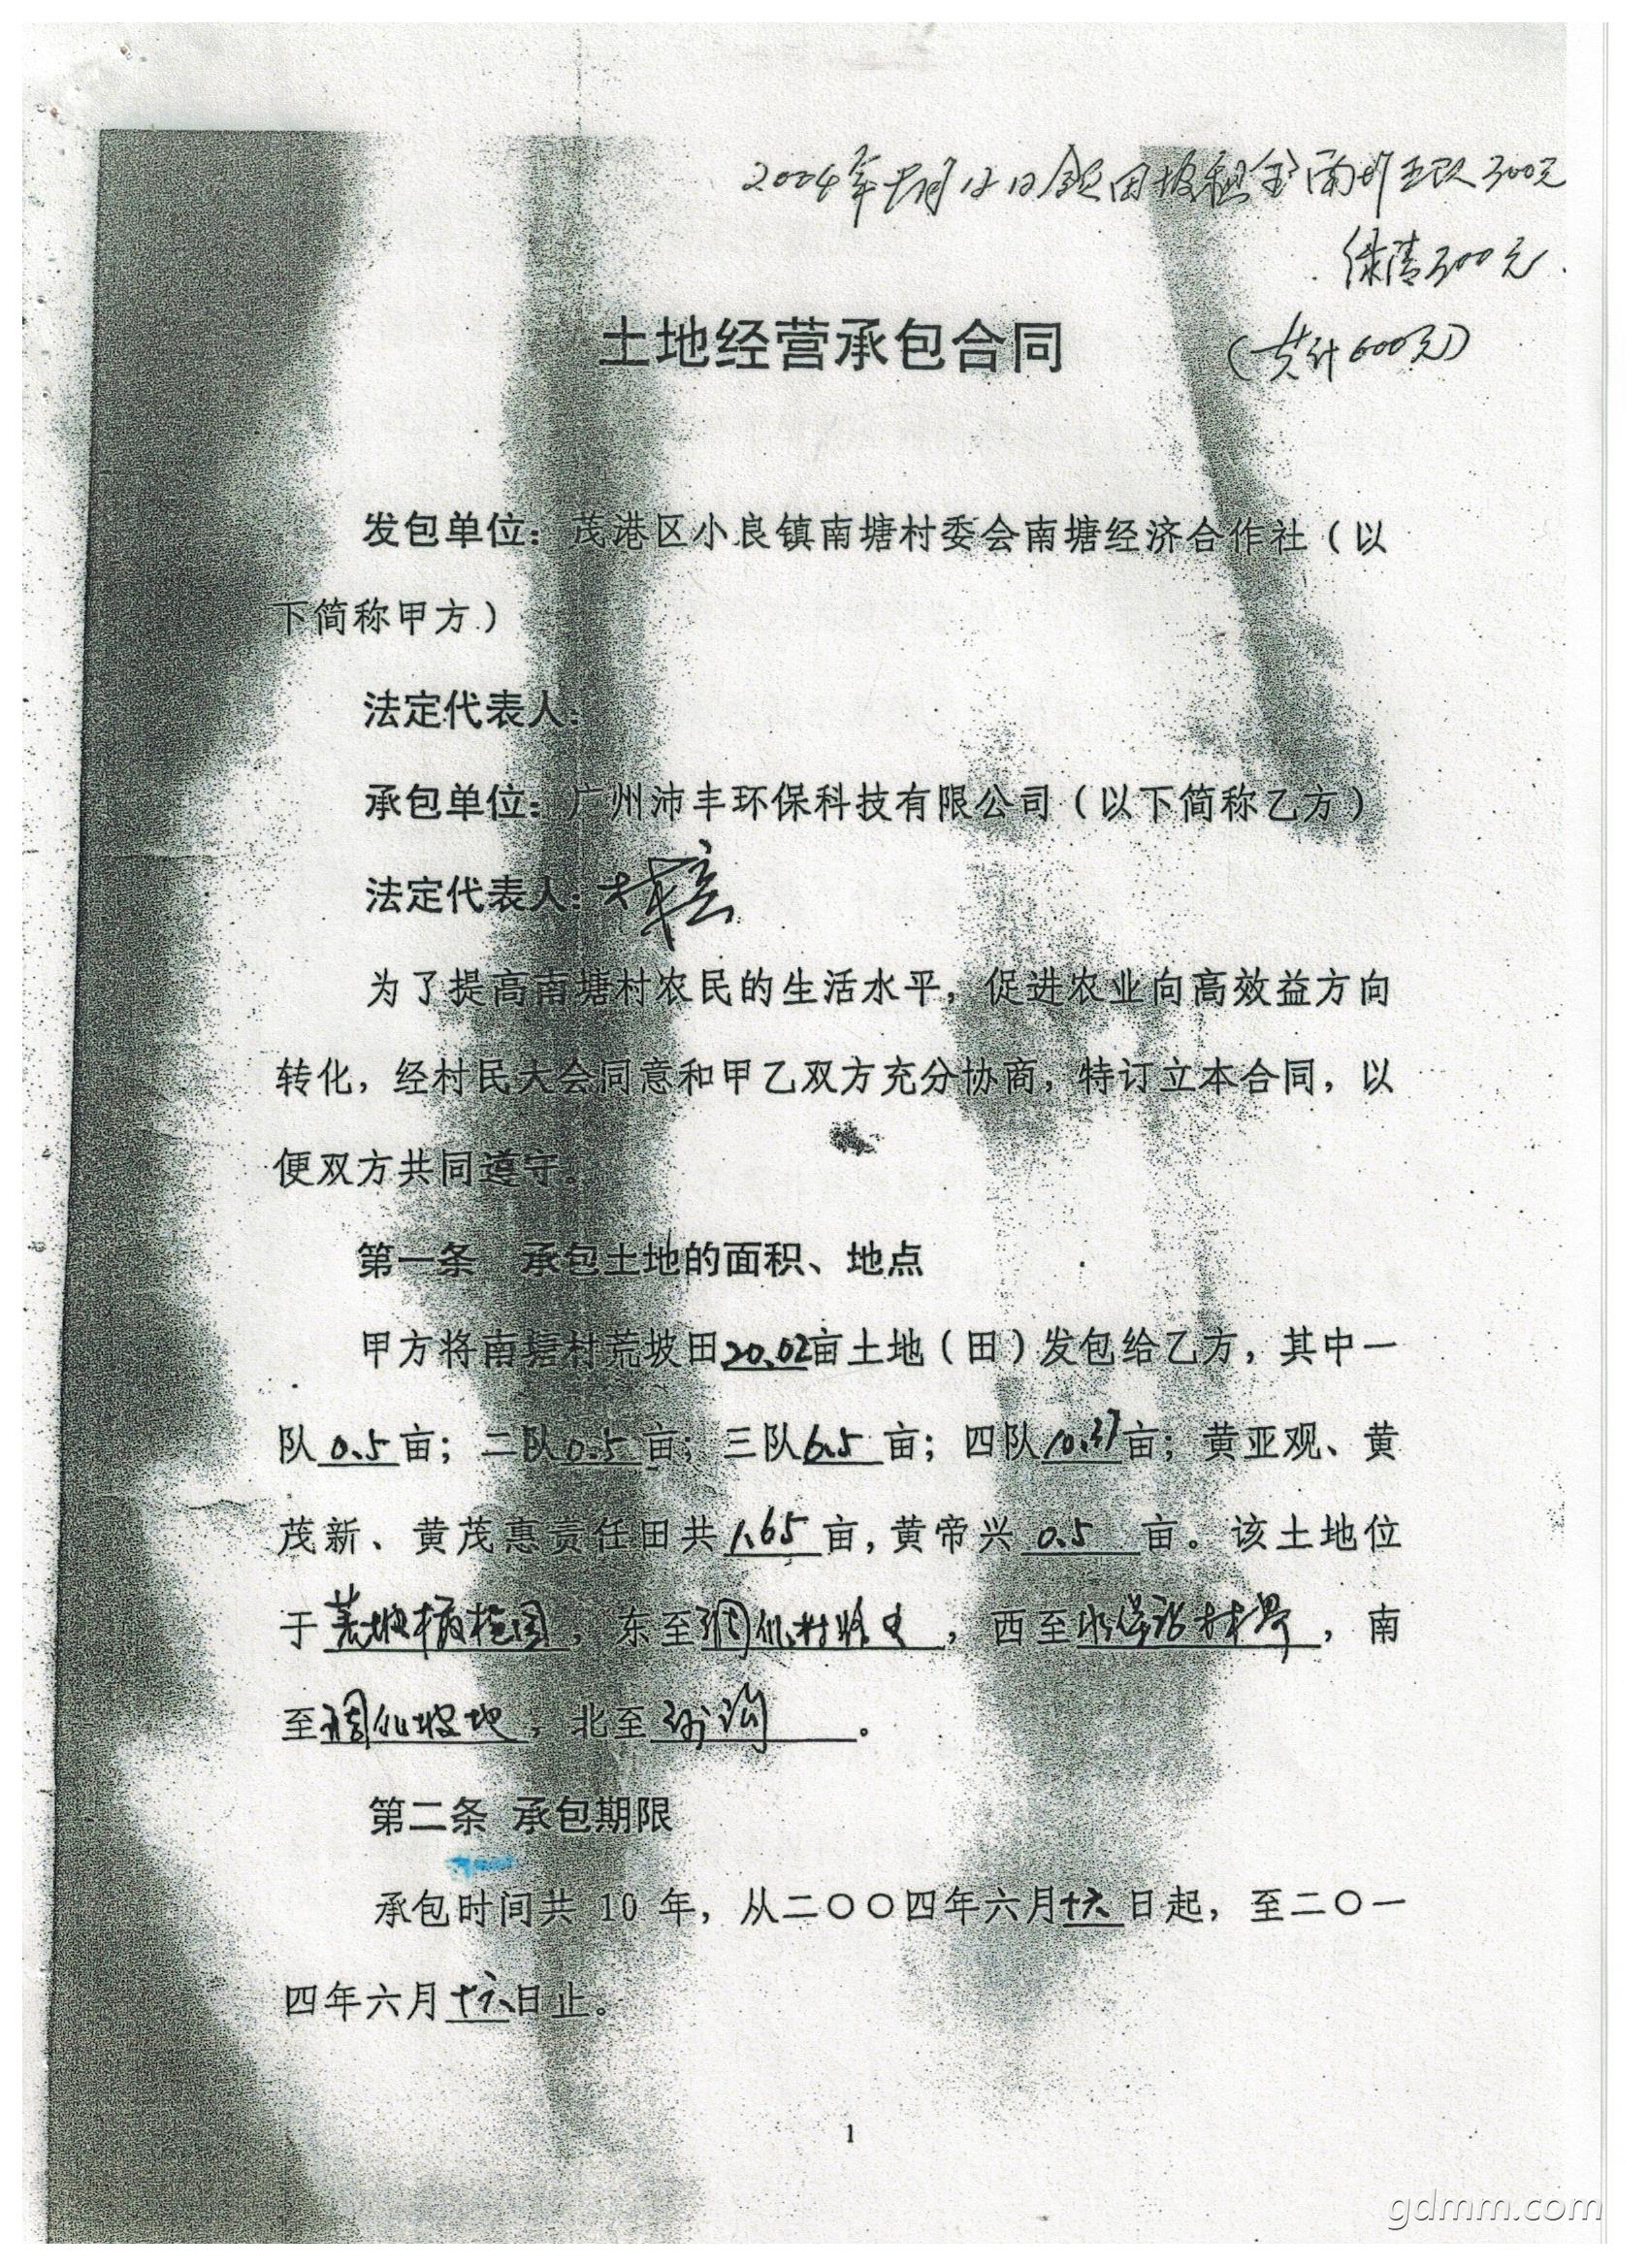 2004年 月12日领田坡租金南 300元
300元
(共计600元)
土地经营承包合同
发包单位：茂港区小良镇南塘村委会南塘经济合作社（以
下简称甲方）
法定代表人：
承包单位：广州沛丰环保科技有限公司（以下简称乙方）
法定代表人：
为了提高南塘村农民的生活水平，促进农业向高效益方向
转化，经村民大会同意和甲乙双方充分协商，特订立本合同，以
便双方共同遵守。
第一条 承包土地的面积、地点
甲方将南塘村荒坡田20.02亩土地（田）发包给乙方，其中一
队0.5亩；二队0.5亩；三队6.5亩；四队10.37亩；黄亚观、黄
茂新、黄茂惠责任田共1.65亩，黄帝兴0.5亩。该土地位
于荒坡 园，东至 村 ，西至水 林界，南
至 坡地，北至 沟。
第二条 承包期限
承包时间共 10 年，从二〇〇四年六月十六日起，至二〇一
四年六月十六日止。
1
gdmm.com